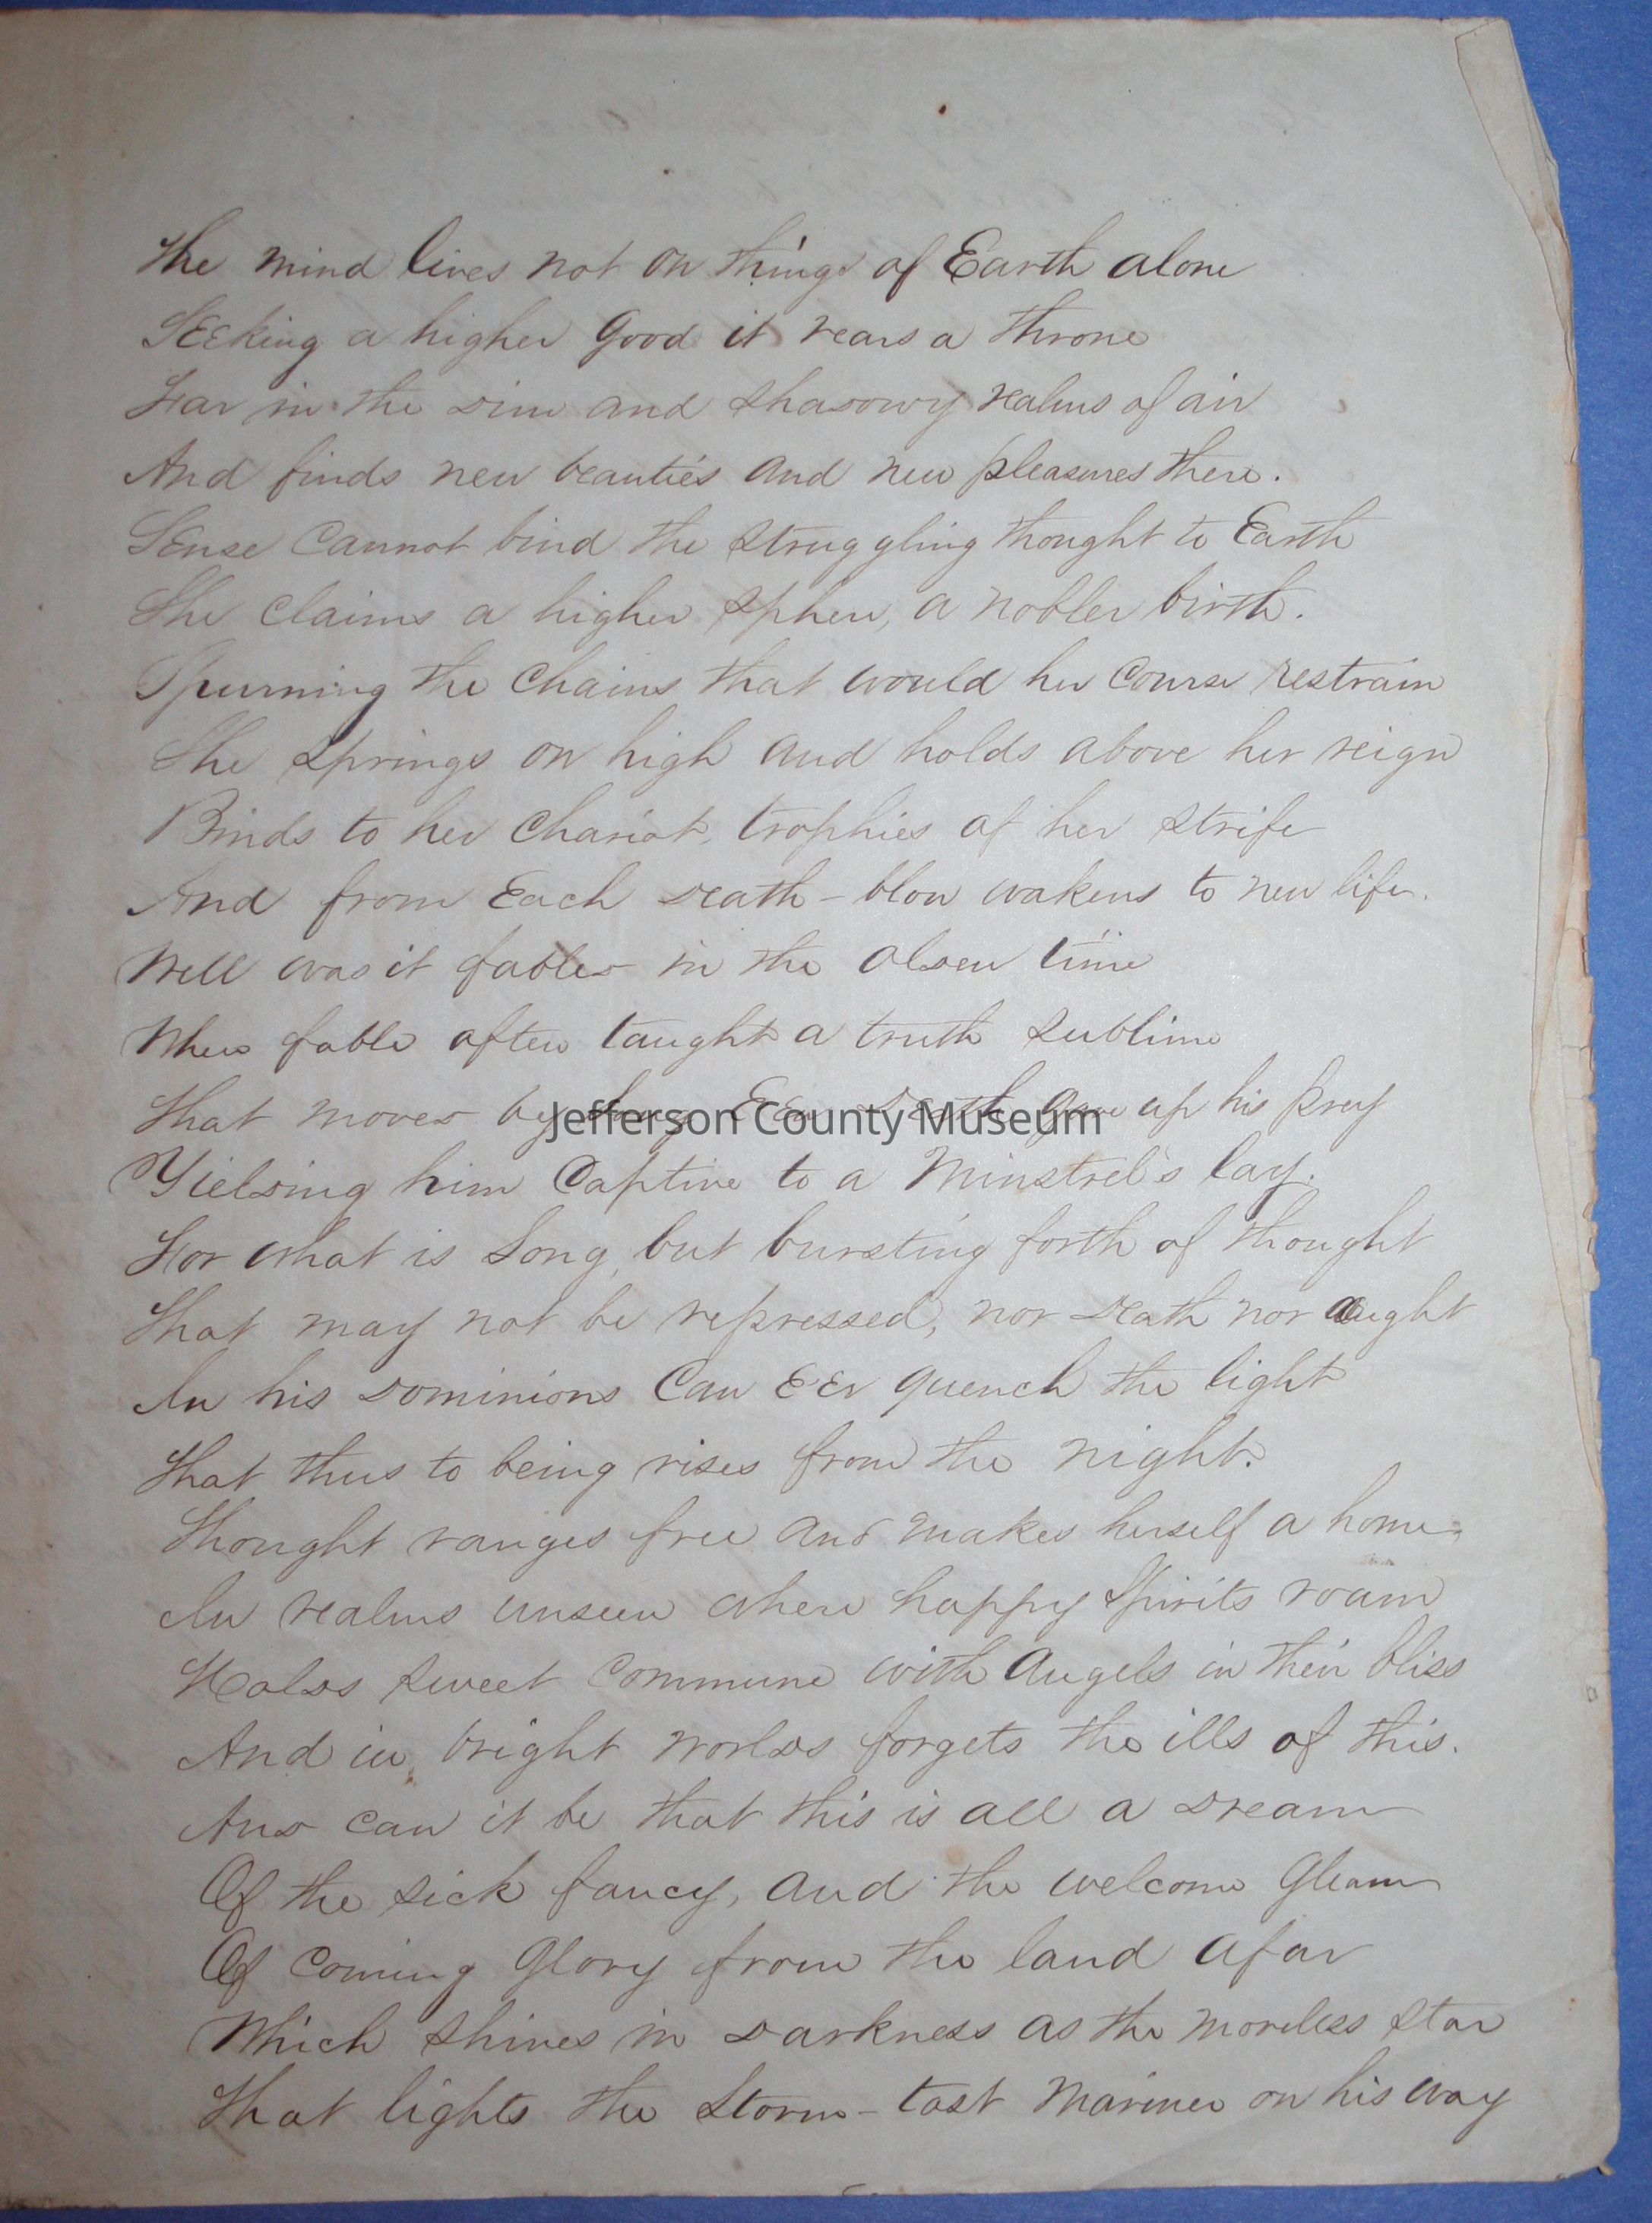 The mind lives not on things of Earth alone
Seeking a higher good it rears a throne
Far in the dim and shadowy realms of air
And finds new beauties and new pleasures there.
Sense cannot bind the struggling thought to Earth
She claims a higher sphere, a nobler birth.
Spurning the chains that would her course restrain
She springs on high and holds above her reign
Binds to her chariot, trophies of her strife
And from Each death-blow wakens to new life.
Well was it fabled in the olden time
When fable often taught a truth sublime
That moved by Song Een Death gave up his prey
Jefferson County Museum
Yielding him Captive to a Minstrel's lay.
For what is Song, but bursting forth of thought
That may not be repressed, nor Death nor aught
In his dominions Can EEr quench the light
That thus to being rises from the night.
Thought ranges free and makes herself a home
In realms unseen where happy Spirits roam
Holds sweet commune with Angels in their bliss
And in bright worlds forgets the ills of this.
And can it be that this is all a dream
Of the sick fancy, and the welcome Gleam
Of coming Glory from the land afar
Which shines in darkness as the moveless star
That lights the storm-tost Mariner on his way